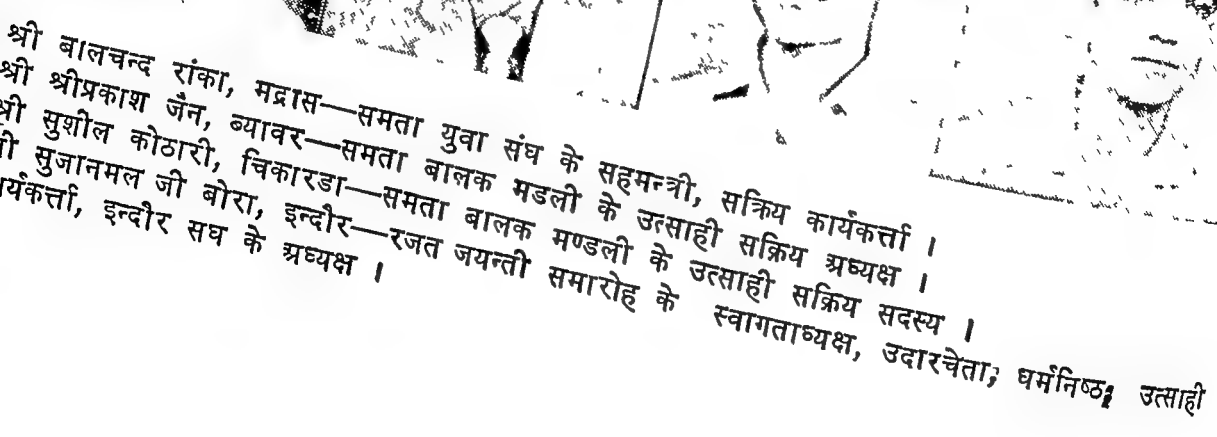 श्री बालचन्द रांका, मद्रास—समता युवा संघ के सहमन्त्री, सक्रिय कार्यकर्त्ता ।
श्री श्रीप्रकाश जैन, ब्यावर—समता बालक मडली के उत्साही सक्रिय अध्यक्ष ।
श्री सुशील कोठारी, चिकारडा—समता बालक मण्डली के उत्साही सक्रिय सदस्य ।
श्री सुजानमल जी बोरा, इन्दौर—रजत जयन्ती समारोह के स्वागताध्यक्ष, उदारचेता, धर्मनिष्ठ, उत्साही
र्यकर्त्ता, इन्दौर सघ के अध्यक्ष ।